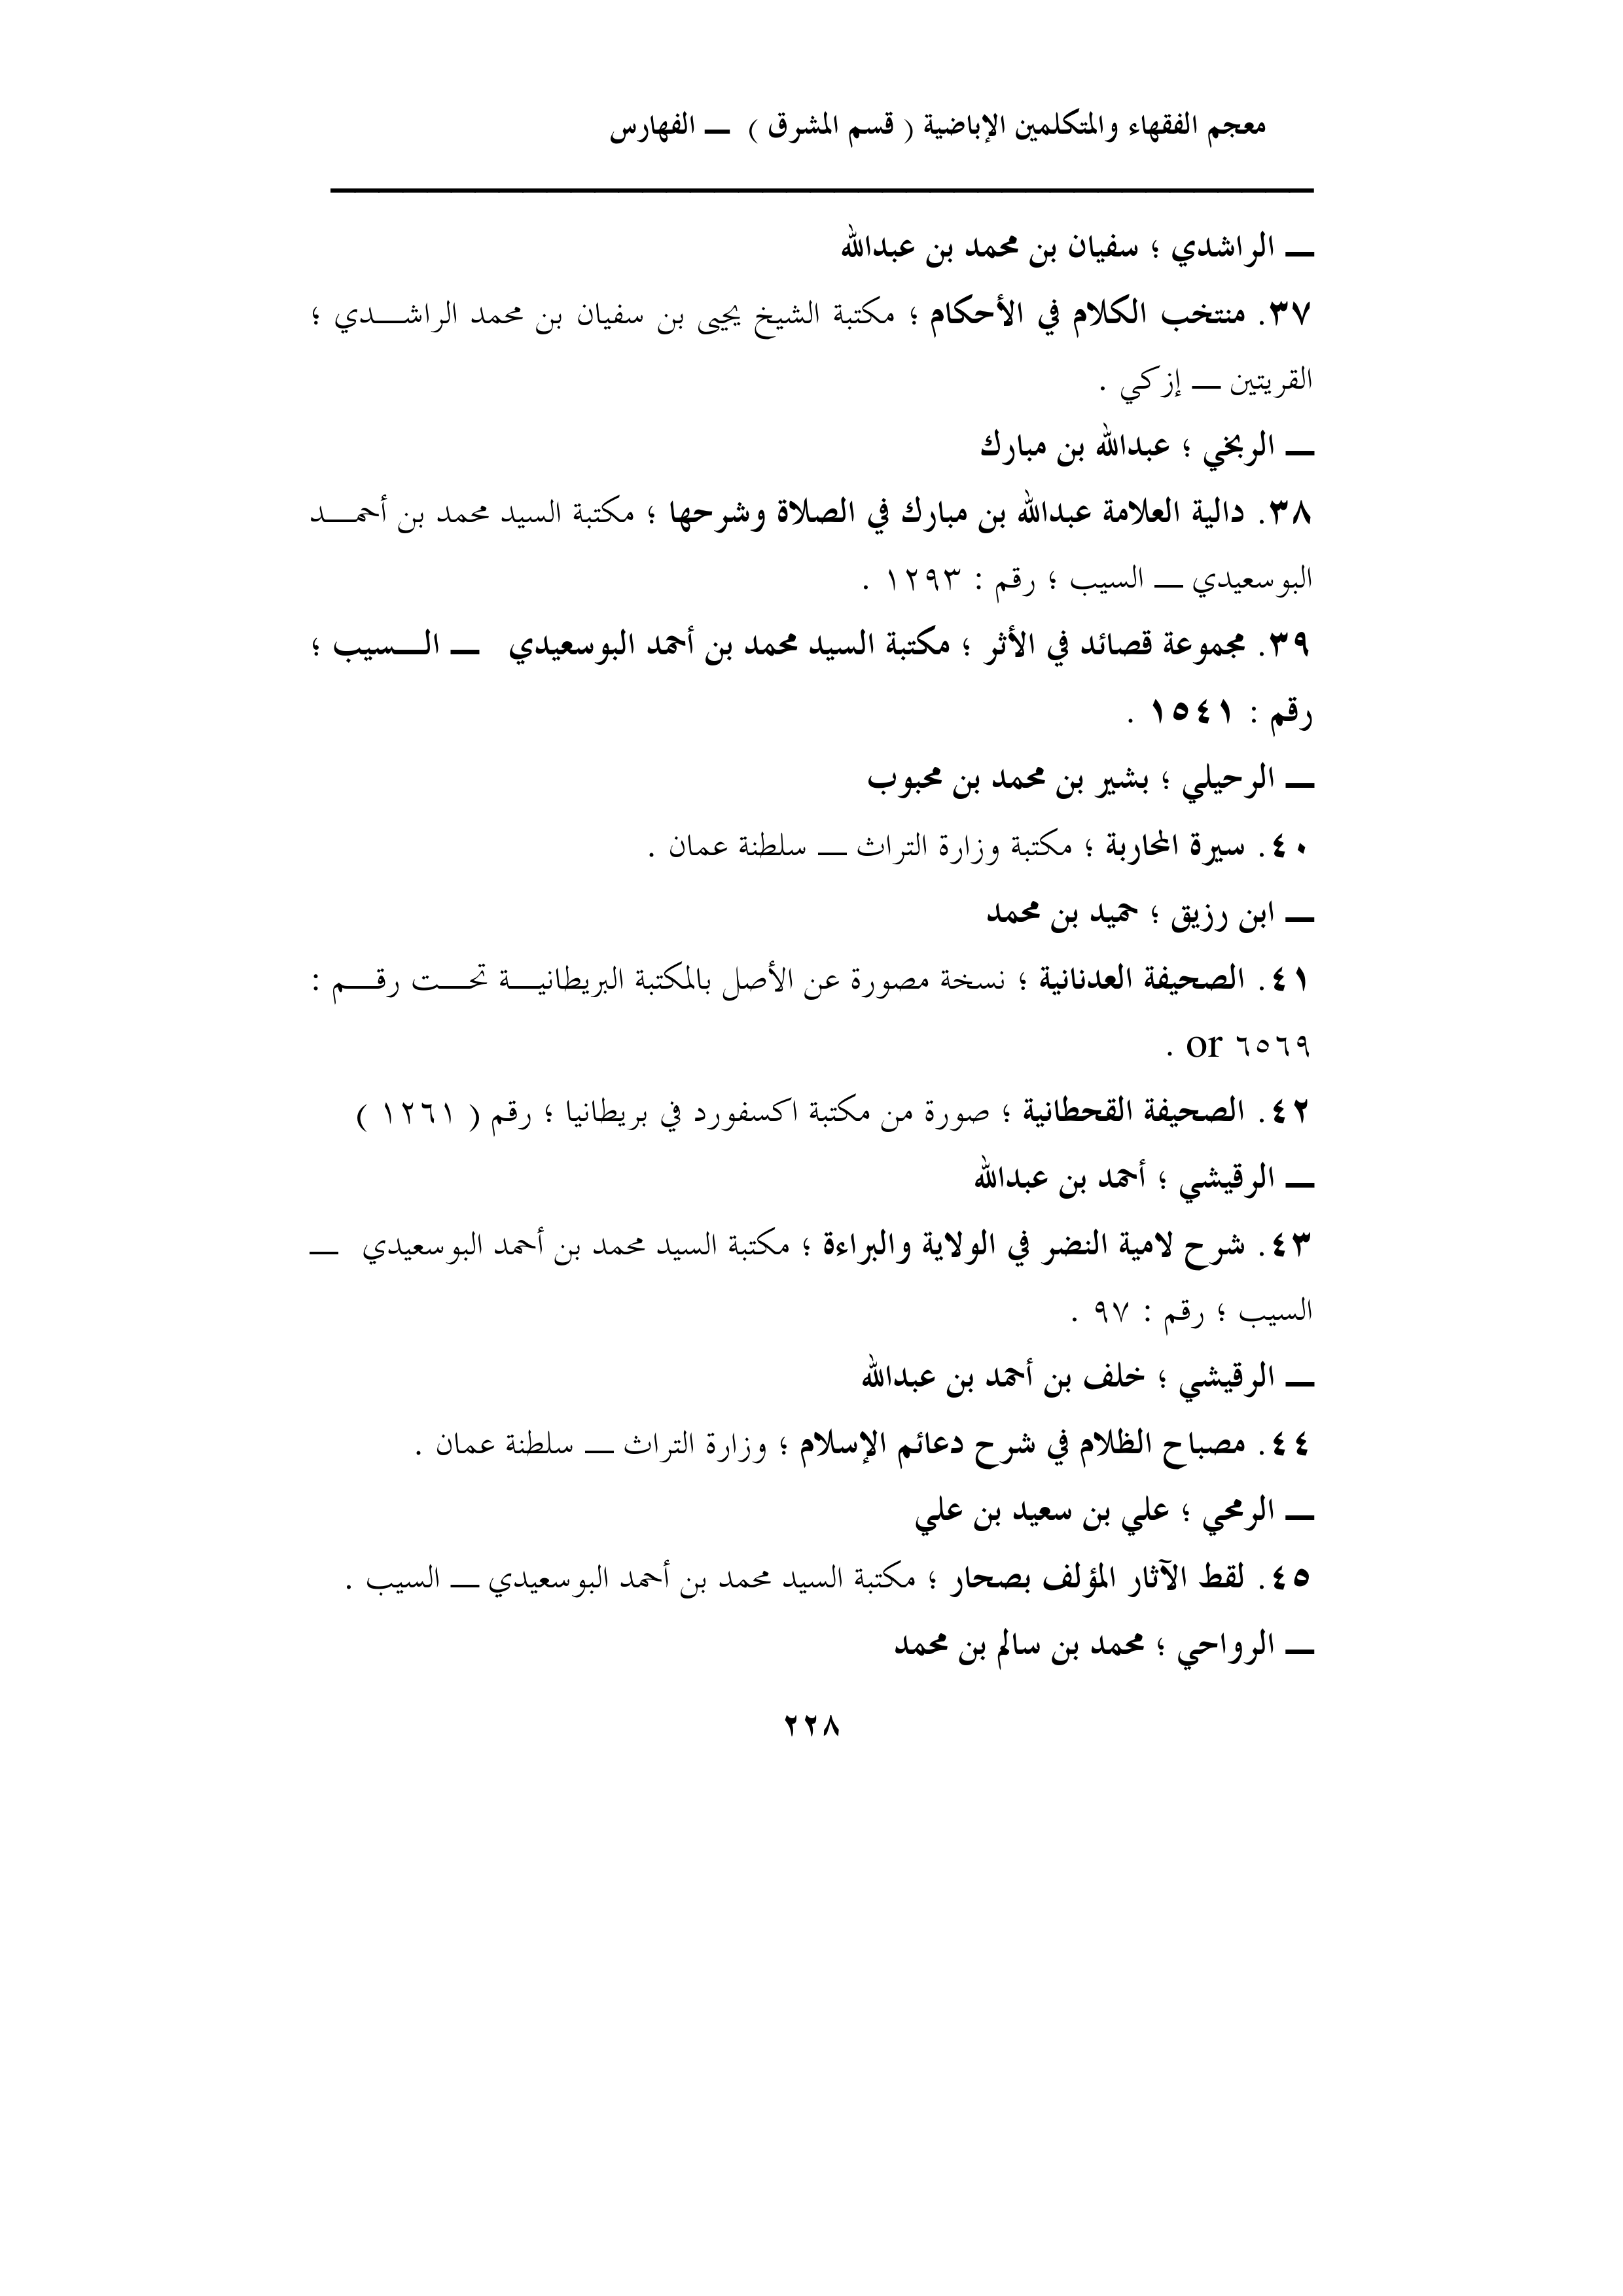 معجم الفقهاء والمتكلمين الإباضية ( قسم المشرق ) ــ الفهارس
ــ الراشدي ؛ سفيان بن محمد بن عبدالله
٣٧. منتخب الكلام في الأحكام ؛ مكتبة الشيخ يحيى بن سفيان بن محمد الراشـــدي ؛
القريتين ــ إزكي .
ــ الربخي ؛ عبدالله بن مبارك
٣٨. دالية العلامة عبدالله بن مبارك في الصلاة وشرحها ؛ مكتبة السيد محمد بن أحمـــد
البوسعيدي ــ السيب ؛ رقم : ١٢٩٣ .
٣٩. مجموعة قصائد في الأثر ؛ مكتبة السيد محمد بن أحمد البوسعيدي ــ الـــسيب ؛
رقم : ١٥٤١ .
ــ الرحيلي ؛ بشير بن محمد بن محبوب
٤٠. سيرة المحاربة ؛ مكتبة وزارة التراث ــ سلطنة عمان .
ــ ابن رزيق ؛ حميد بن محمد
٤١. الصحيفة العدنانية ؛ نسخة مصورة عن الأصل بالمكتبة البريطانيـــة تحـــت رقـــم :
٦٥٦٩ or .
٤٢. الصحيفة القحطانية ؛ صورة من مكتبة اكسفورد في بريطانيا ؛ رقم ( ١٢٦١ )
ــ الرقيشي ؛ أحمد بن عبدالله
٤٣. شرح لامية النضر في الولاية والبراءة ؛ مكتبة السيد محمد بن أحمد البوسعيدي ــ
السيب ؛ رقم : ٩٧ .
ــ الرقيشي ؛ خلف بن أحمد بن عبدالله
٤٤. مصباح الظلام في شرح دعائم الإسلام ؛ وزارة التراث ــ سلطنة عمان .
ــ الرمحي ؛ علي بن سعيد بن علي
٤٥. لقط الآثار المؤلف بصحار ؛ مكتبة السيد محمد بن أحمد البوسعيدي ــ السيب .
ــ الرواحي ؛ محمد بن سالم بن محمد
٢٢٨